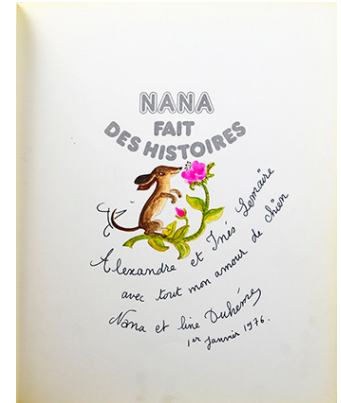 NANA
FAIT
DES HISTOIRES
Alexandre et Inés Lemaire
avec tout mon amour de chien
Nana et line Duhême
1er Janvier 1976.